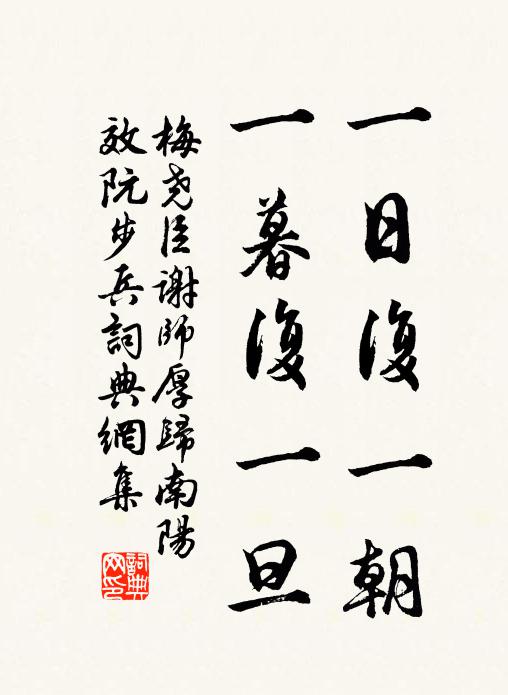 一日復一朝
一暮復一旦
梅堯臣謝師厚歸南陽
效阮步兵詞典網集
詞典網印